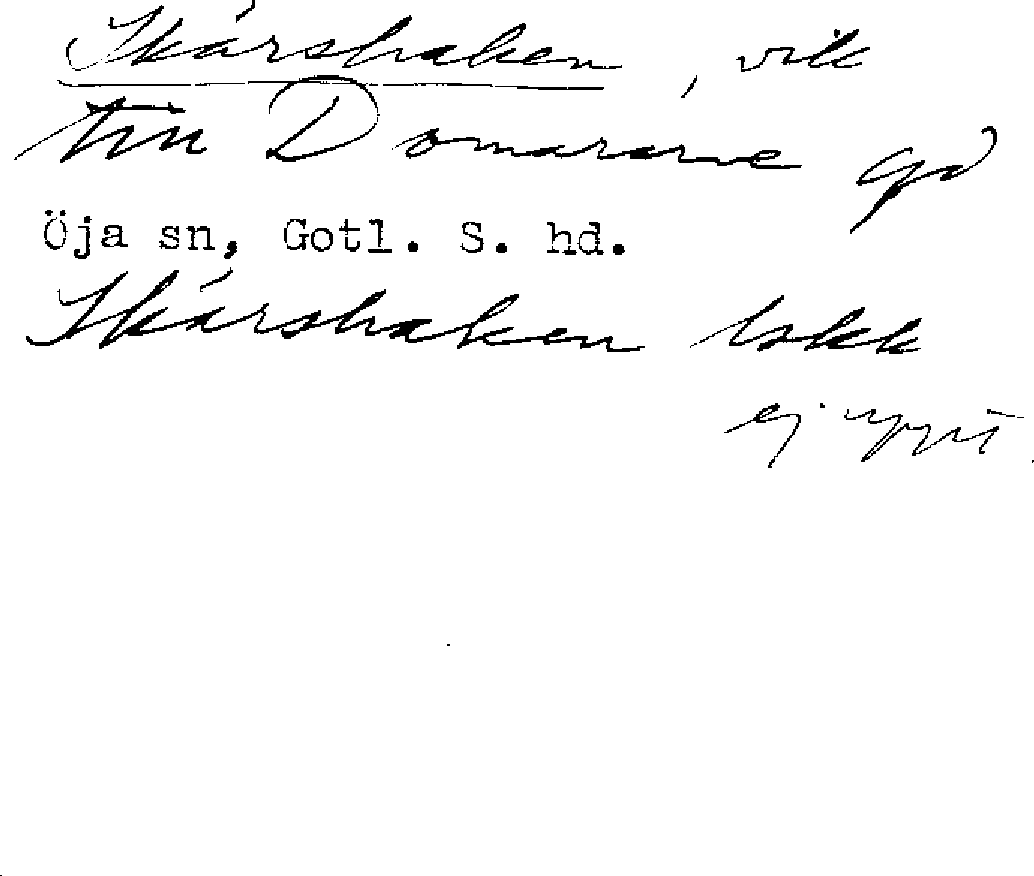 Skárshaken, vik
till Domararve gd
Öja sn, Gotl. S. hd.
Skárshaken Iskk
ej uppt.